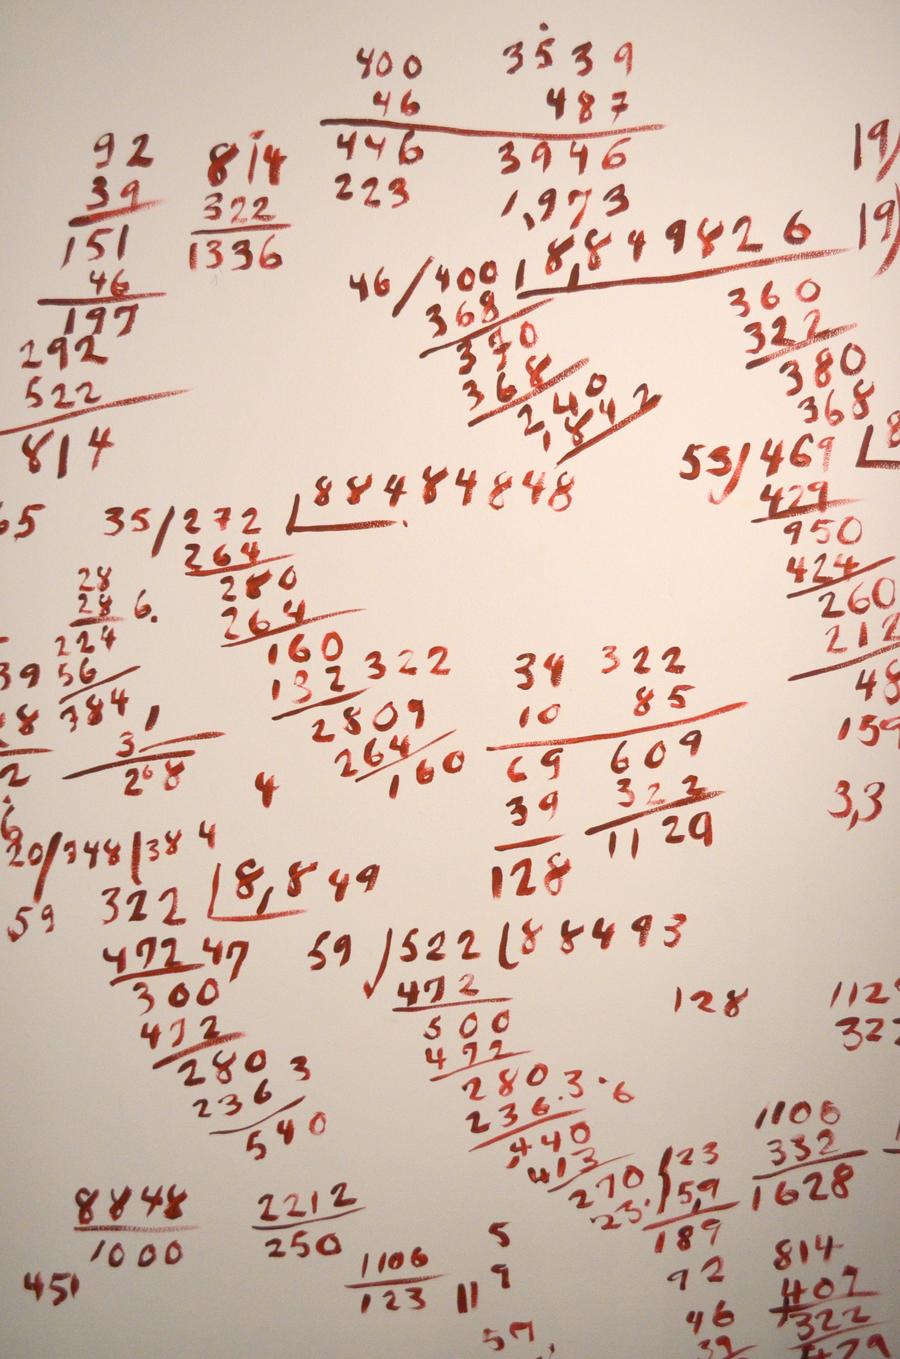 400 3539
46 487
446 3946
223 1,973
92
39
151
46
197
292
522
814
814
322
1336
19/
19)
46/400 18,849826
368
370
368
240
1842
360
322
380
368
53/469
429
950
424
260
212
48
159
3,3
65
35/272 88484848
264
280
264
160
132 322
2809
264
160
28
28 6.
224
56
784
39
48
2
31
208
4
34 322
10 85
69 609
39 322
128 1129
20/348/384
59
322 8,849
472 47
300
472
280 3
236
540
59/522 (88493
472
500
472
280.3.6
236
440
413
270
23
128
1129
322
123
59
189
1106
332
1628
8848
1000
451
2212
250
1106
123
5
11 9
57
92
46
39
814
407
322
479